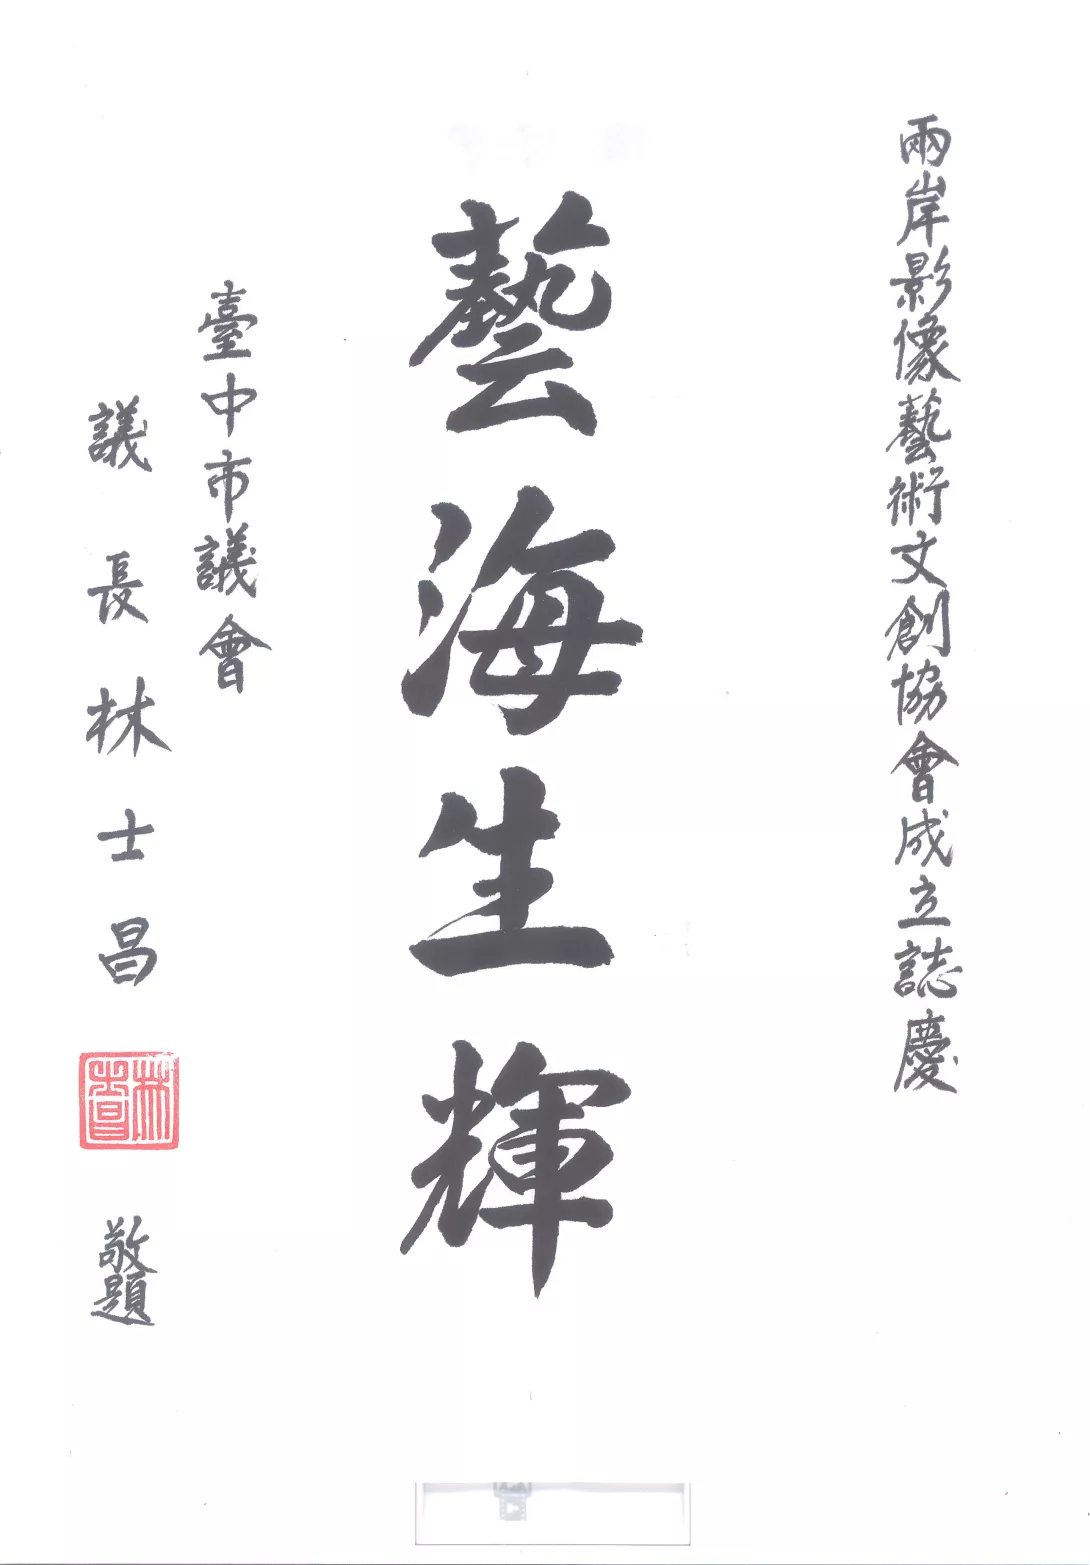 兩岸影像藝術文創協會成立誌慶
藝海生輝
臺中市議會
議長林士昌
敬題